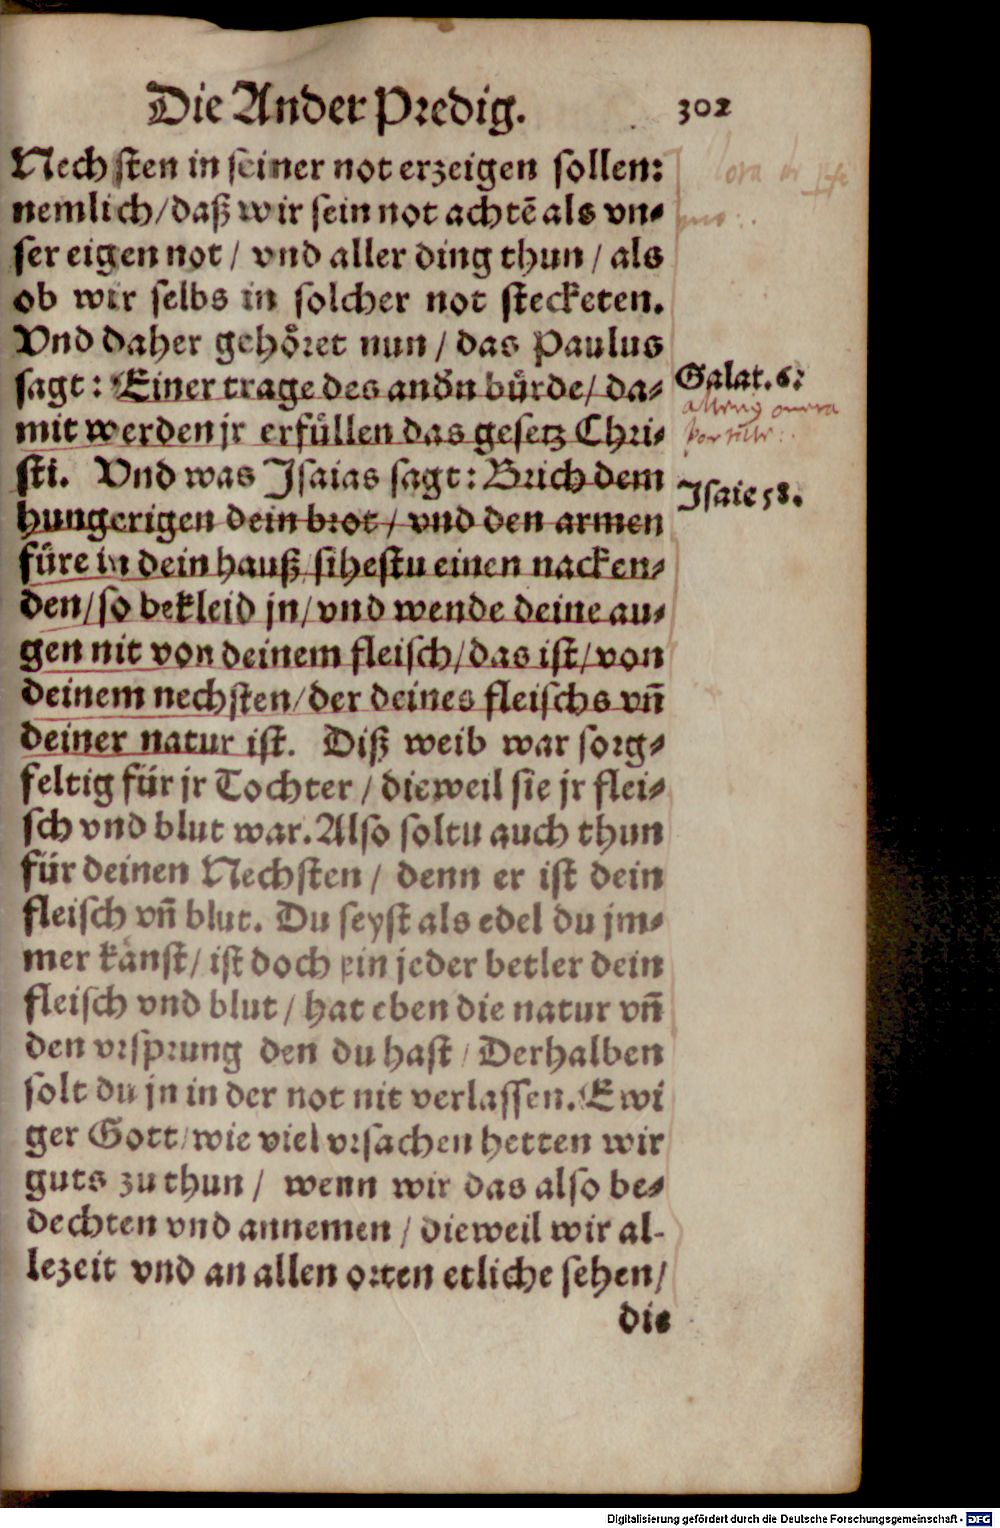 Die Ander Predig. 302
Nechsten in seiner not erzeigen sollen:
nemlich/daß wir sein not achtẽ als vn-
ser eigen not/ vnd aller ding thun/ als
ob wir selbs in solcher not stecketen.
Vnd daher gehöret nun/ das Paulus
sagt: Einer trage des andn bürde/ da-
Galat. 6.
mit werden jr erfüllen das gesetz Chri-
alterius onera
portate
sti. Vnd was Jsaias sagt: Brich dem
Jsaie 58.
hungerigen dein brot/ vnd den armen
füre in dein hauß/ sihestu einen nacken-
den/so bekleid jn/vnd wende deine au-
gen nit von deinem fleisch/das ist/von
deinem nechsten/der deines fleischs vñ
deiner natur ist. Diß weib war sorg-
feltig für jr Tochter/ dieweil sie jr flei-
sch vnd blut war. Also soltu auch thun
für deinen Nechsten/ denn er ist dein
fleisch vñ blut. Du seyst als edel du jm-
mer kanst/ ist doch ein jeder betler dein
fleisch vnd blut/ hat eben die natur vñ
den vrsprung den du hast/ Derhalben
solt du jn in der not nit verlassen. Ewi
ger Gott/wie viel vrsachen hetten wir
guts zu thun/ wenn wir das also be-
dechten vnd annemen/ dieweil wir al-
lezeit vnd an allen orten etliche sehen/
die
Digitalisierung gefördert durch die Deutsche Forschungsgemeinschaft - DFG